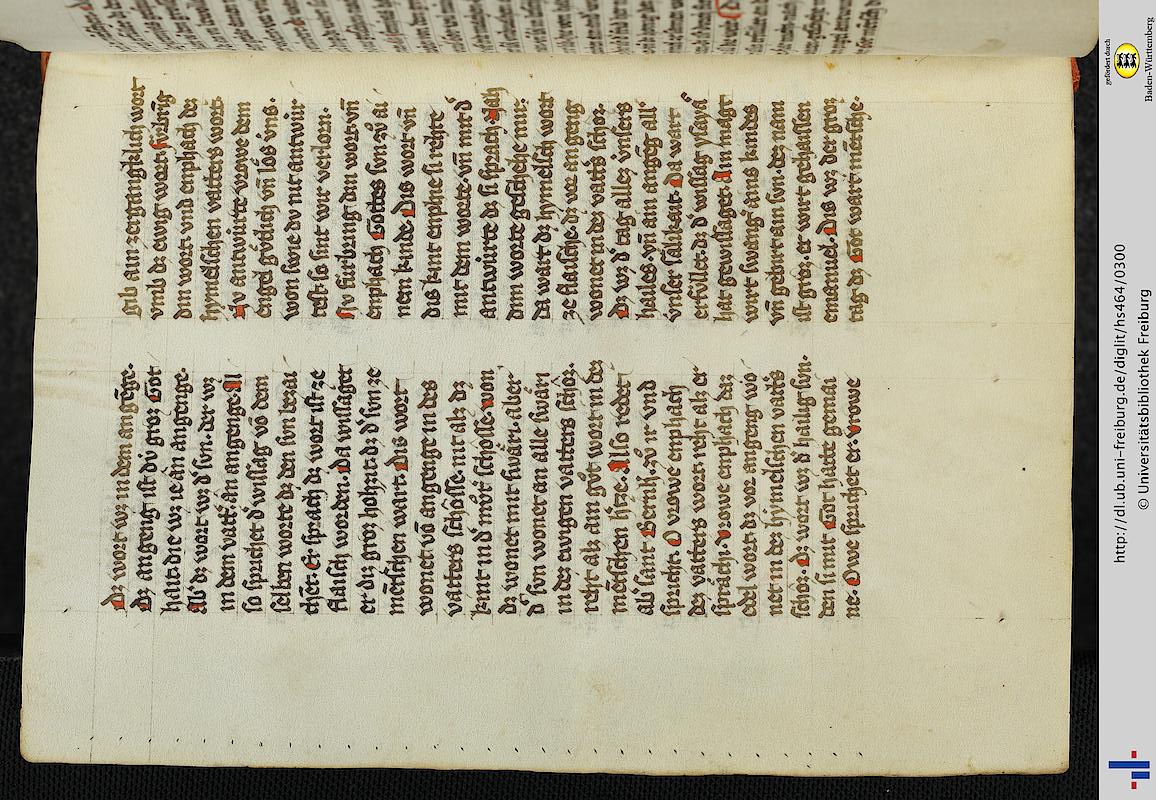 Dz wort wz in dem angēge.
Dz angeng ist dv́ groz Got
hait. die wz ie ān angenge.
Als dz wort wz d' sun. der wz
in dem vatt'. ān angenge. Al
so sprichet d' wissag vō dem
selben worte dz den sun bezai
chēt. Er sprach dz wort ist ze
flaisch worden. Da wissaget
er diz groz hohzit. dz d' sun ze
mētschen wart. Dis wort
wonet vō angenge in des
vatters schosse. nit alz dz
kint in d' mv̊t' schosse. won
dz wonet mit swäri. aber
d' sun wonet ān alle swäri
in dez ewigen vatters schoz.
reht alz ain gv̊t wort in dez
mētschen h'ze. Also redet
als' sant Bernh. zv̊ ir vnd
spricht. O vrowe enphach
dez vatters wort. reht alz er
spräch. vrowe enphach daz
edel wort. dz vor angeng wo
net in dez hymelschen vatt's
schoz. Dz wort wz d' hailig sun.
den si mit Got hatte gemai
ne. Owe sprichet er. vrowe
gib ain zergangklich wort
vmb dz ewig wort. fúrbring
din wort. vnd enphach dez
hymelschen vatters wort.
Gv antwúrte vrowe dem
engel gv̊tlich vn̄ lös vns.
won swe dv nit antwúr
test. so sint wir verlorn.
Sv fúrbring din wort. vn̄
enphach Gottes sun zv̊ ai
nem kinde. Das wort vn̄
dis kint enphie si rehte
mit dem worte. vn̄ mit d'
antwúrte dz si sprach. Nah
dim worte geschehe mir.
da wart dz hymelsch wort
ze flaische. dz vor angeng
wonet in dez vatt's schoz.
Dz wz d' tag allez vnsers
hailes. vn̄ ain angēg all'
vnser sälikait. Da wart
erfúllet dz d' wissag ysaya
hat gewissaget. Ain magt
wirt swang' ains kindes
vn̄ gebirt ain sun. dez nam
ist groz. er wirt gehaissen
emanuel. Dis wz der groz
tag dz Got wart mētsche.
http://dl.ub.uni-freiburg.de/diglit/hs464/0300
© Universitätsbibliothek Freiburg
gefördert durch
Baden-Württemberg